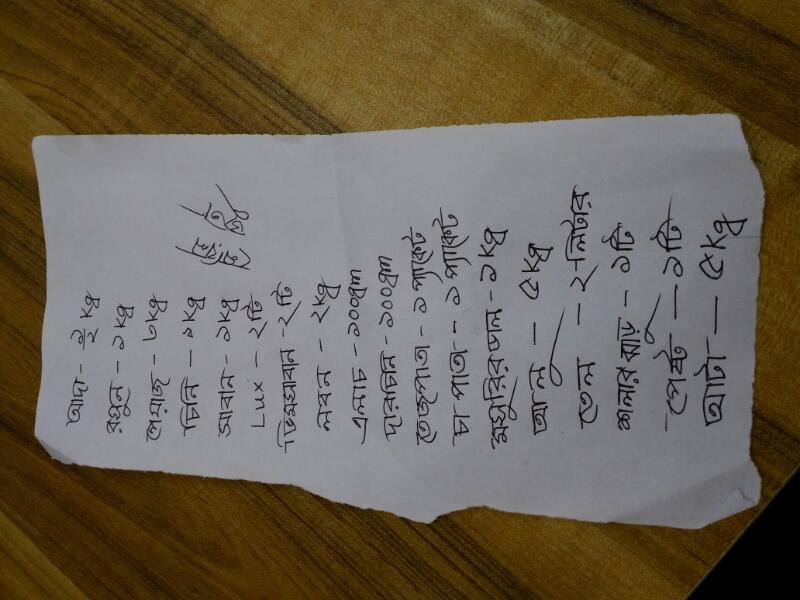 আদা - ১/২ kg
রসুন - ১kg
পেয়াজ - ৩kg
চিনি - ১kg
সাবান - ১kg
Lux - ২টি
ভিমসাবান - ২টি
লবন - ২kg
এলাচ - ১০০gm
দারচিনি - ১০০gm
তেজপাতা - ১ প্যাকেট
চা পাতা - ১ প্যাকেট
মসুরির ডাল - ১kg
আলু - ৫kg
তেল - ২ লিটার
শলার ঝাড়ু - ১টি
পেষ্ট - ১টি
আটা - ৫kg